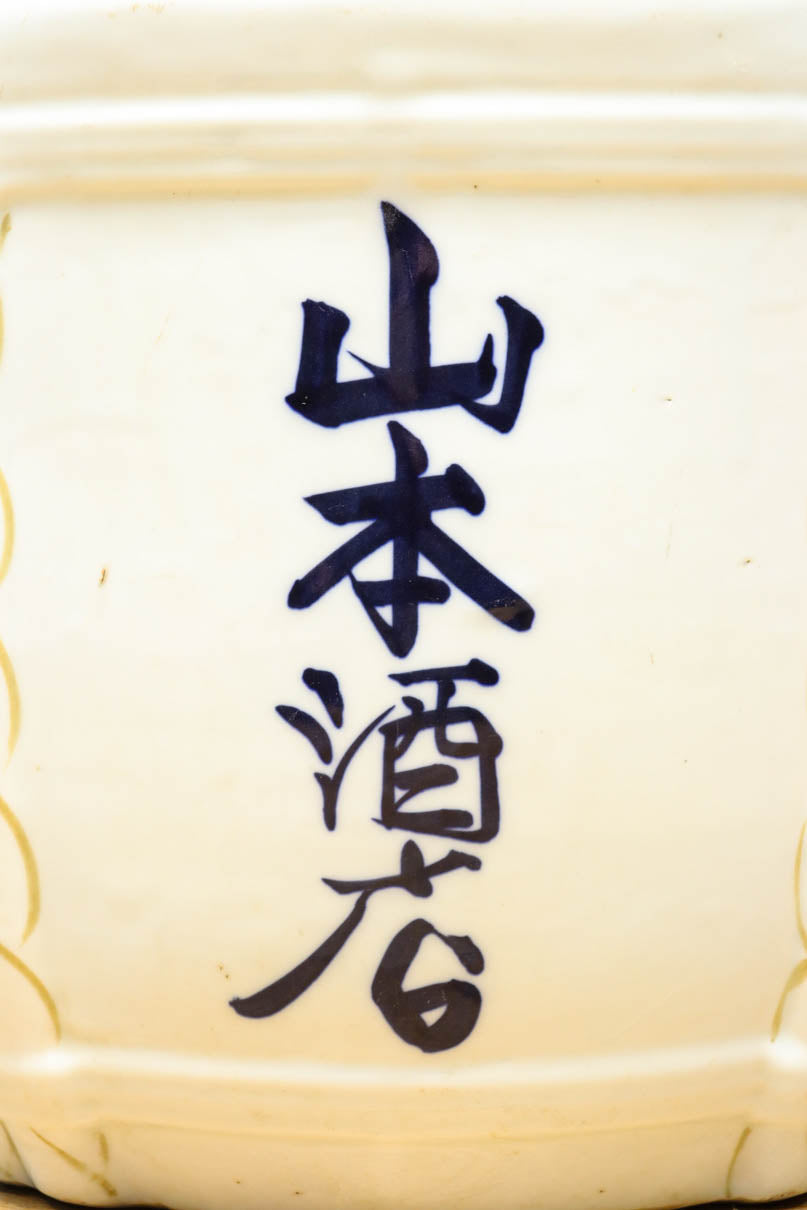 山本酒店